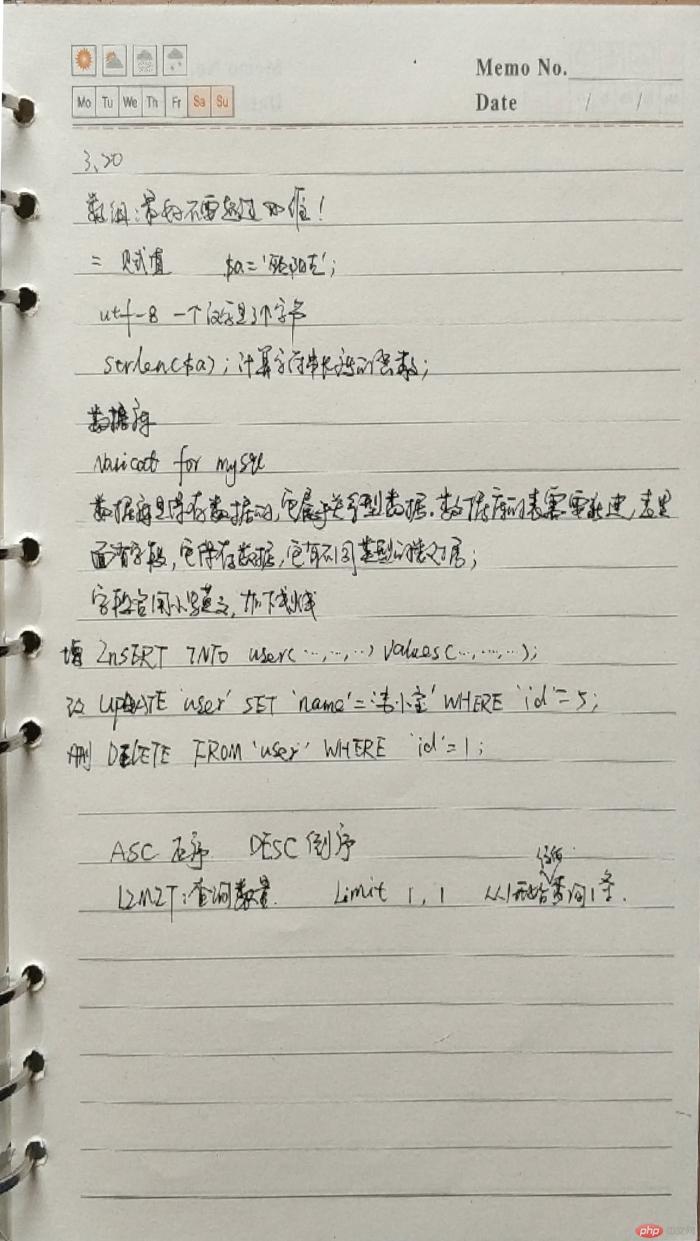 Memo No.
Mo Tu We Th Fr Sa Su
Date / /
3.20
数组:最好不要超过四维!
= 赋值 $a='欧阳克';
utf-8 一个汉字是3个字节
strlen($a);计算字符串长度的函数;
数据库
Navicat for mysql
数据库是保存数据的,它属于关系型数据.数据库的表需要新建,表里
面有字段,它保存数据,它有不同类型的数据;
字段名用小写英文,加下划线
增 INSERT INTO user(…,…,…) values(…,…,…);
改 UPDATE 'user' SET 'name'='小宝' WHERE 'id'=5;
删 DELETE FROM 'user' WHERE 'id'=1;
ASC 正序 DESC 倒序
LIMIT:查询数量. Limit 1,1 从1开始查询1条.
php